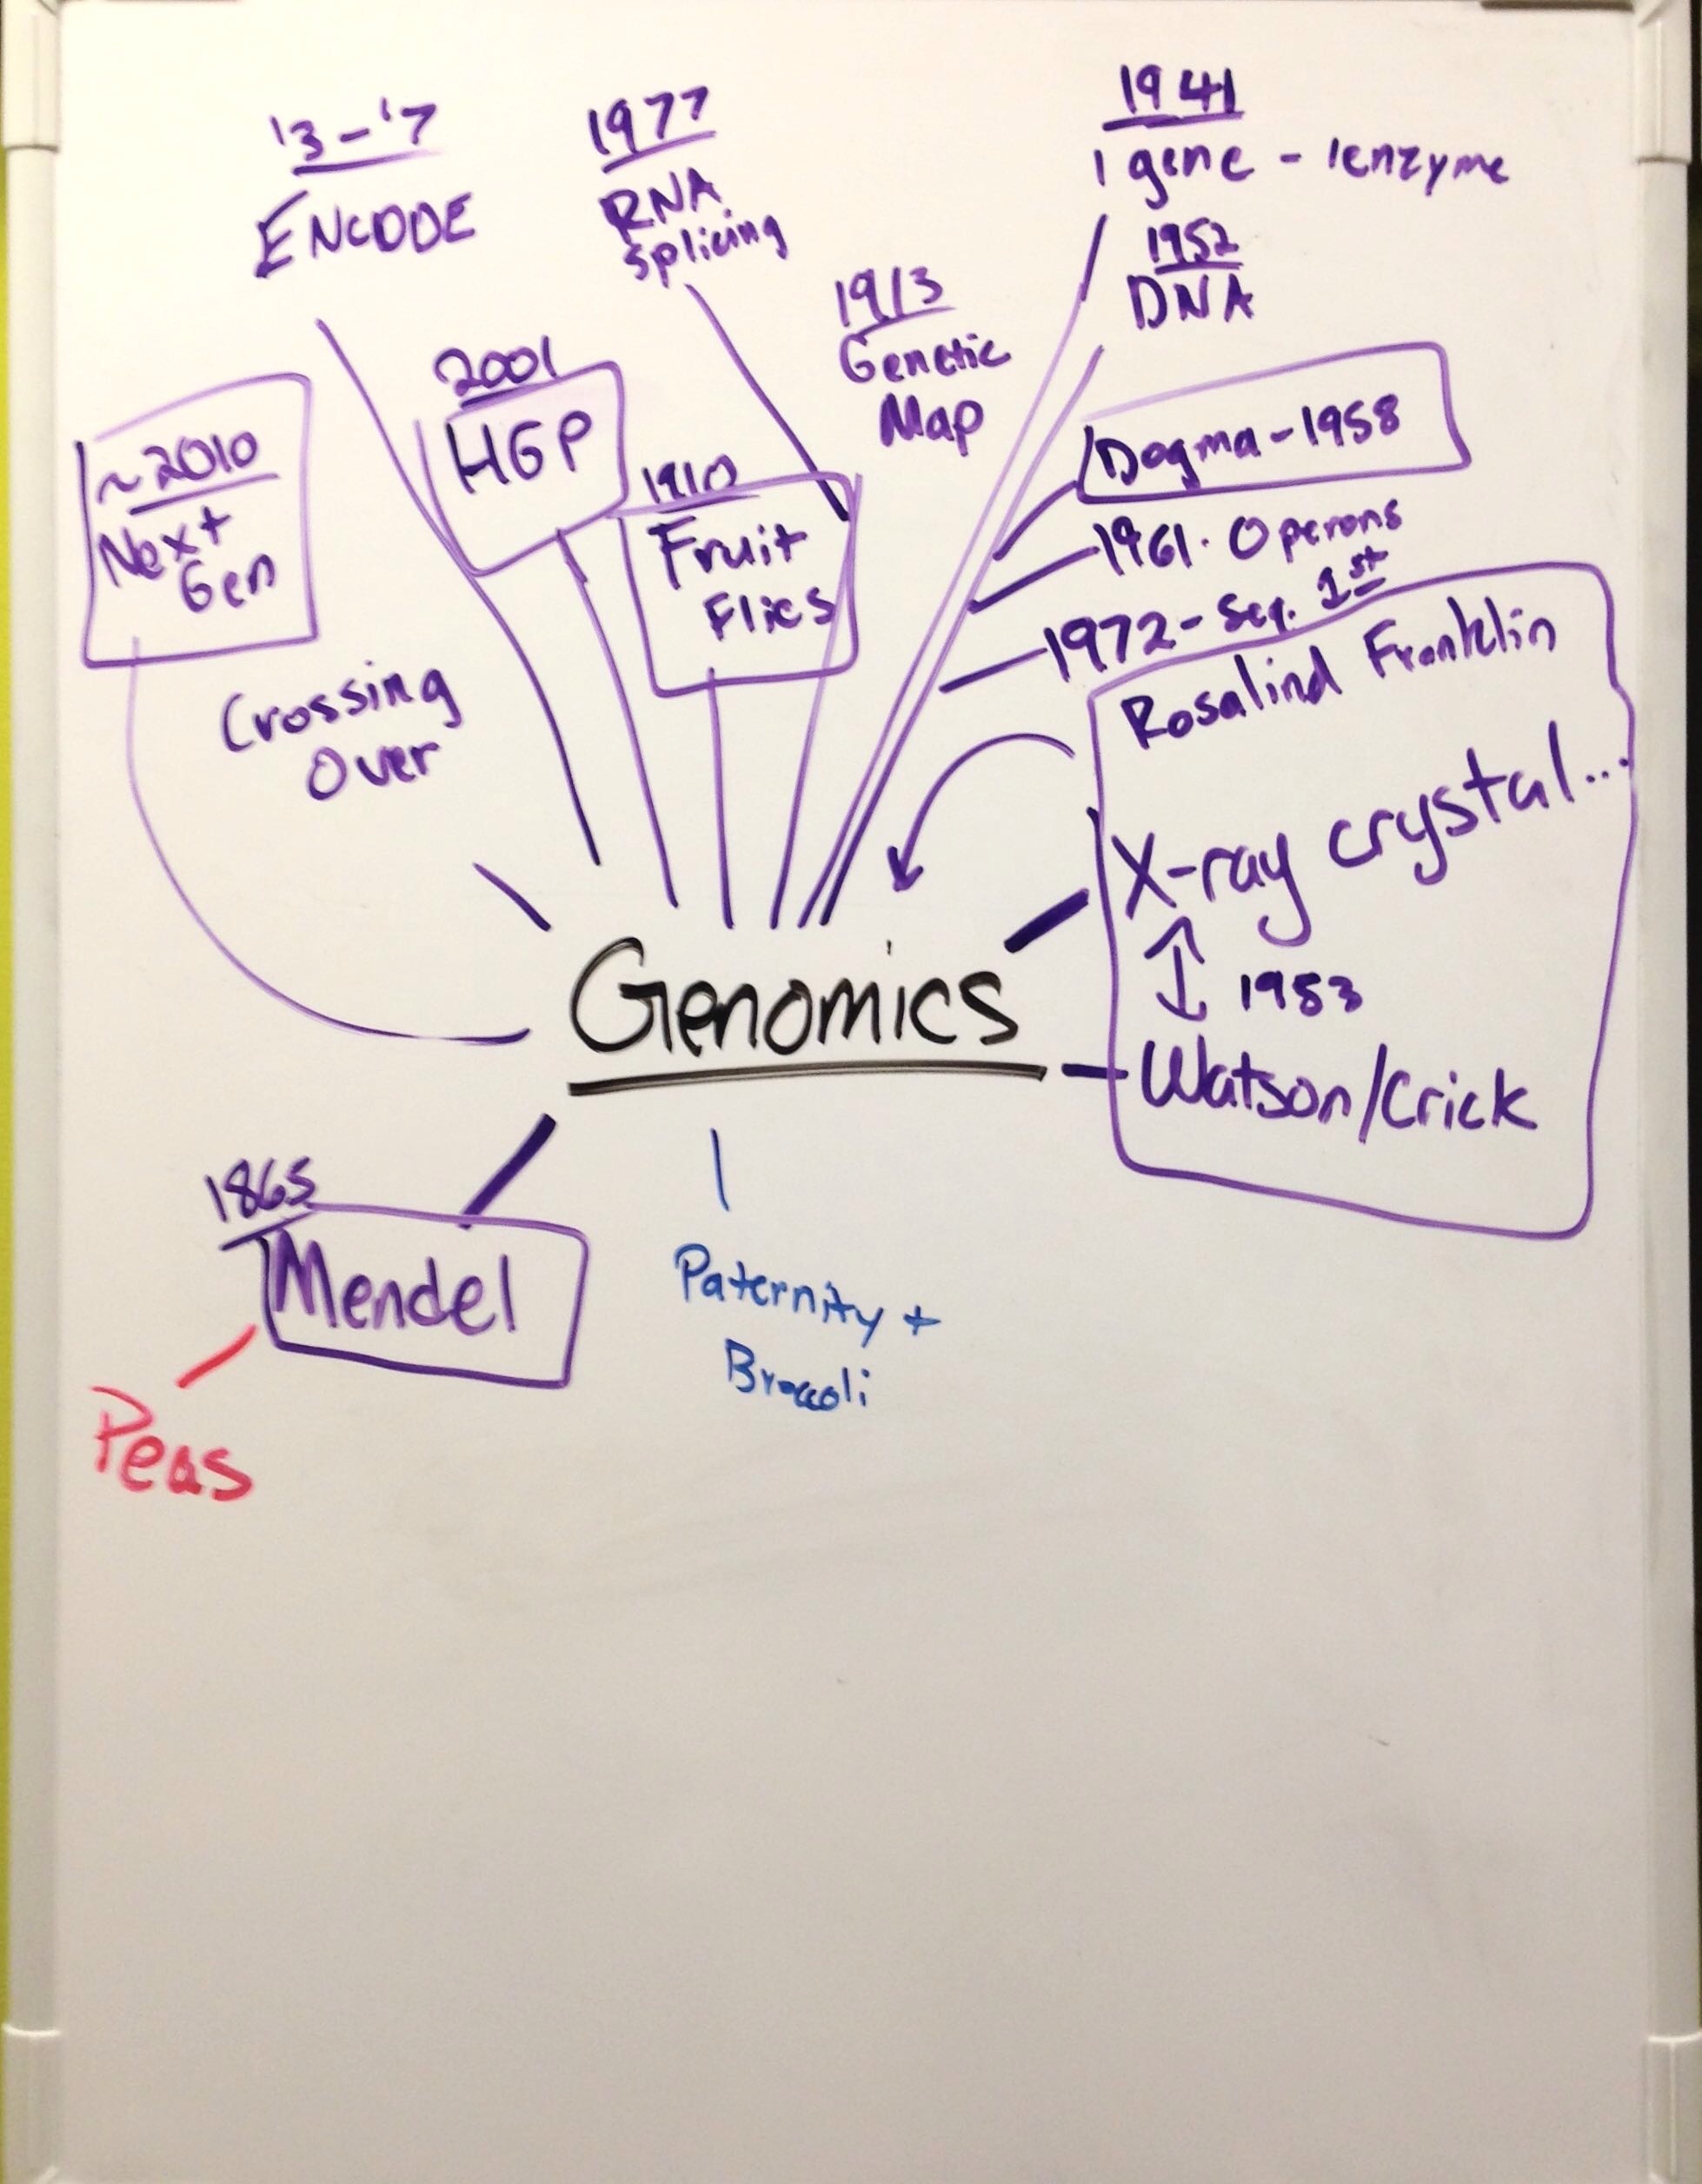 '3-'7
ENCODE
1977
RNA
Splicing
1941
1 gene - 1enzyme
1952
DNA
1913
Genetic
Map
2001
HGP
~2010
Next
Gen
1910
Fruit
Flies
Dogma-1958
1961. Operons
1972- Seq. 1st
Crossing
Over
Rosalind Franklin
X-ray crystal...
1953
Watson/Crick
Genomics
1865
Mendel
Peas
Paternity +
Broccoli